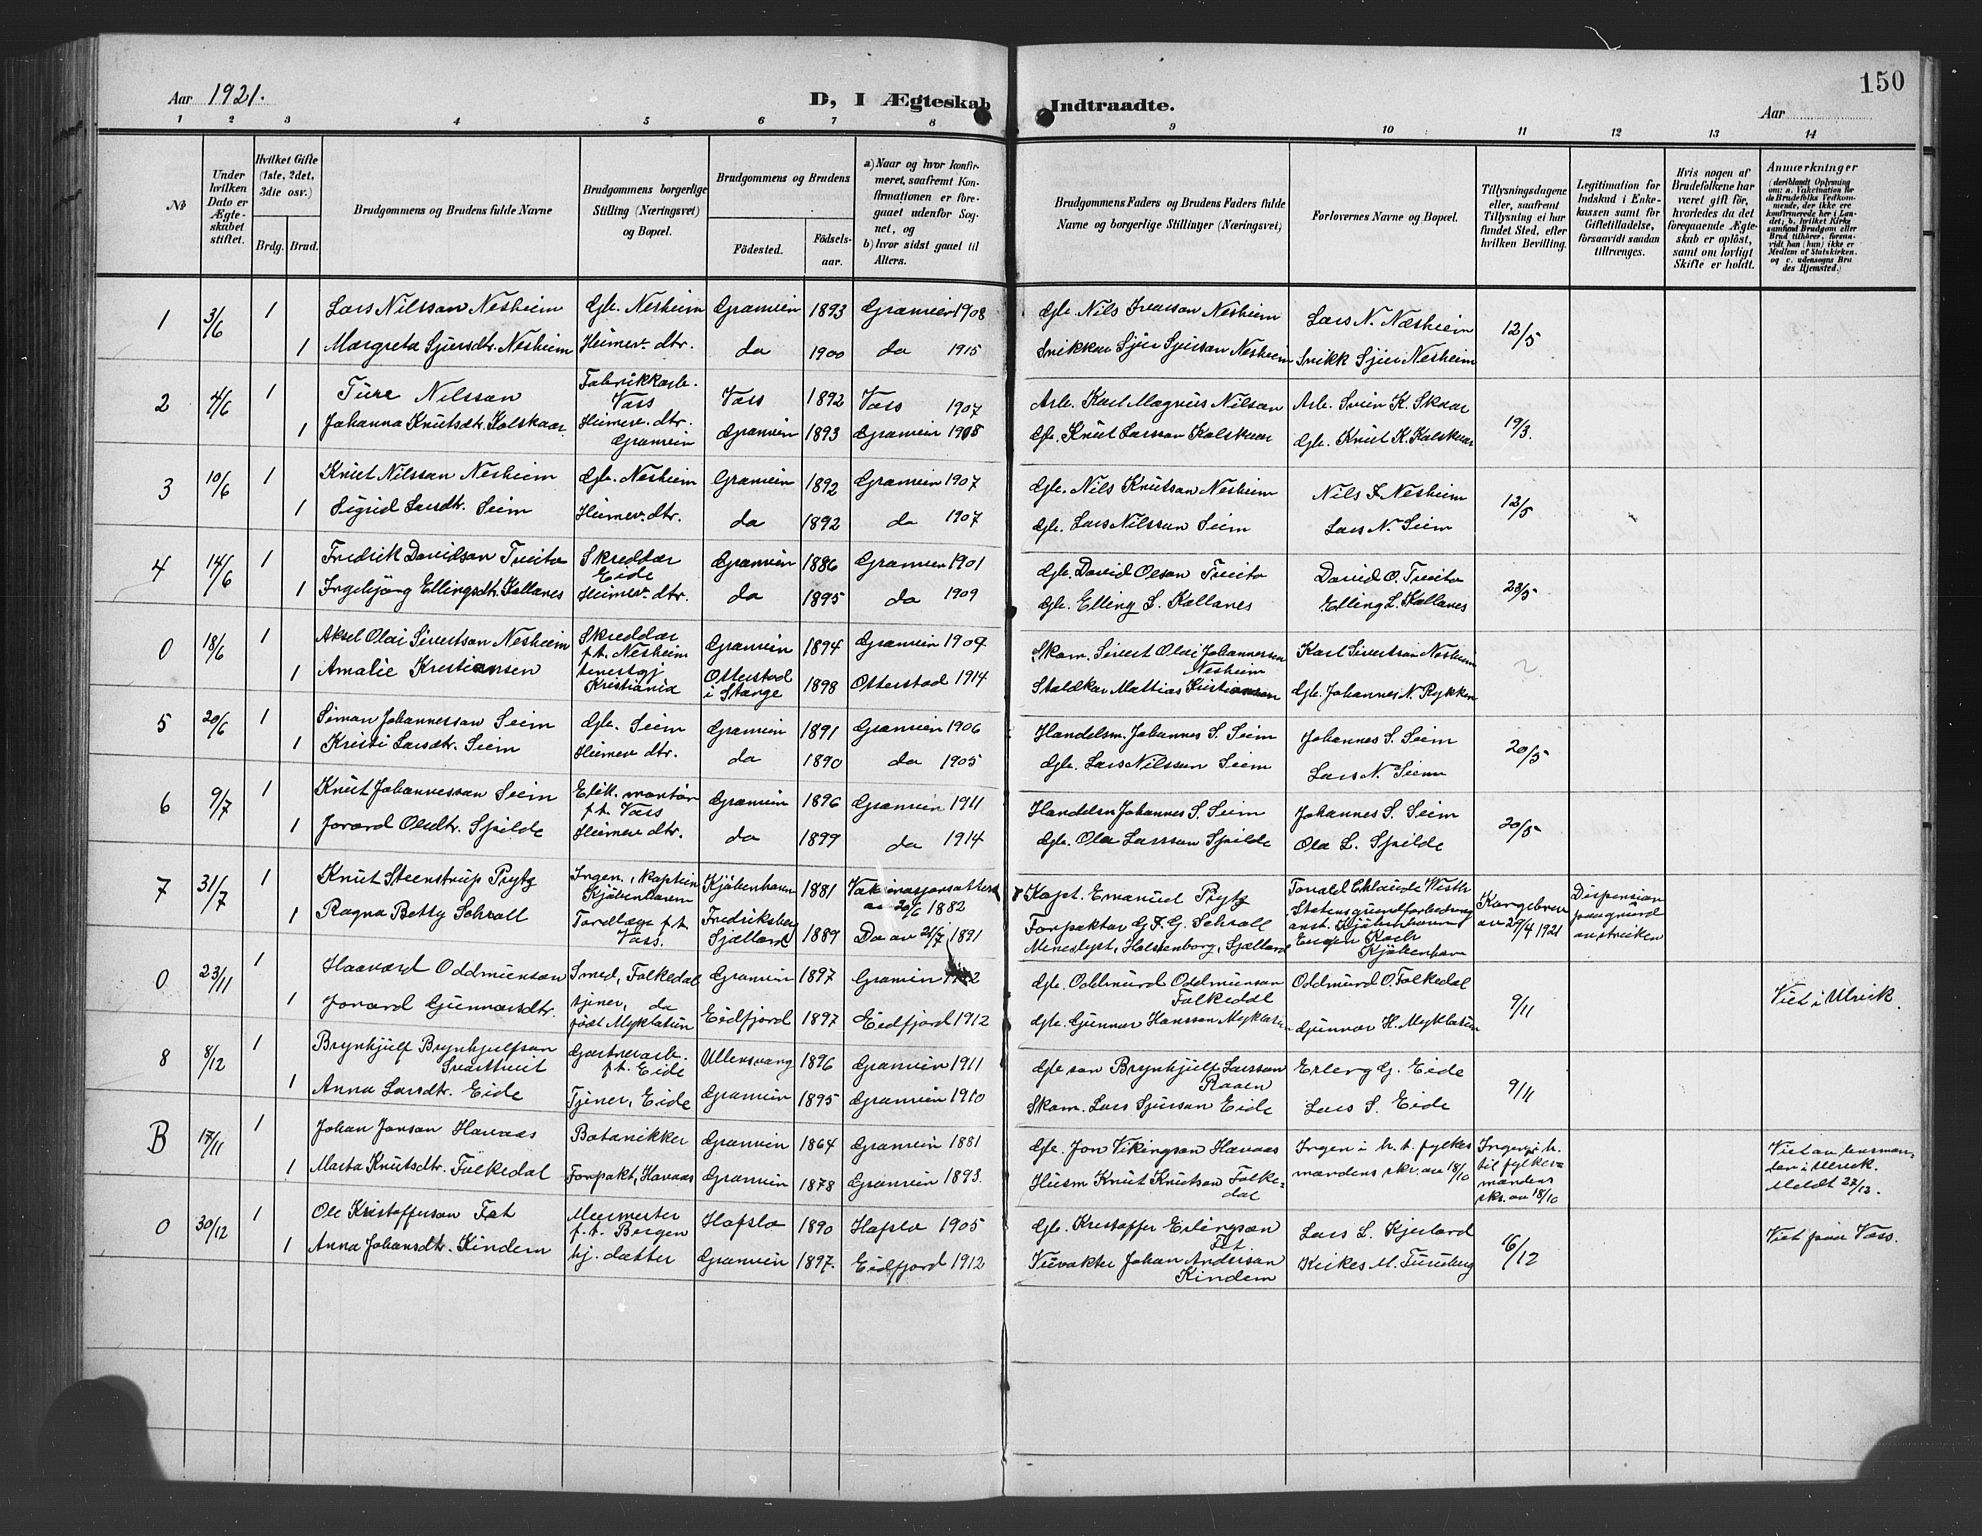 150
Aar 1921.
D, I Ægteskab Indtraadte.
Aar
1 2 3 4 5 6 7 8 9 10 11 12 13 14
No
Under hvilken Dato er Ægteskabet stiftet.
Hvilket Gifte (1ste, 2det, 3die osv.)
Brdg. Brud.
Brudgommens og Brudens fulde Navne
Brudgommens borgerlige Stilling (Næringsvei) og Bopæl.
Brudgommens og Brudens
Fødested. Fødselsaar.
a) Naar og hvor konfirmeret, saafremt Konfirmationen er foregaaet udenfor Sognet, og
b) hvor sidst gaaet til Alters.
Brudgommens Faders og Brudens Faders fulde Navne og borgerlige Stillinger (Næringsvei)
Forlovernes Navne og Bopæl.
Tillysningsdagene eller, saafremt Tillysning ei har fundet Sted, efter hvilken Bevilling.
Legitimation for Indskud i Enkekassen samt for Giftetilladelse, forsaavidt saadan tiltrænges.
Hvis nogen af Brudefolkene har været gift før, hvorledes da det foregaaende Ægteskab er opløst, samt om lovligt Skifte er holdt.
Anmærkninger
(deriblandt Oplysning om: a. Vakcination for de Brudefolks Vedkommende, der ikke ere konfirmerede her i Landet; b. hvilket Kirkesamfund Brudgom eller Brud tilhører, forsaavidt han (hun) ikke er Medlem af Statskirken, og c. udensogns Brudes Hjemsted.)
1 3/6 1 Lars Nilsson Nesheim Gb. Nesheim Granvin 1893 Granvin 1908 Gb. Nils Ivarson Nesheim Lars N. Næsheim 12/5
1 Margreta Sjursdtr. Nesheim Heimev. dtr. da 1900 da 1915 Snikkar Sjur Sjurson Nesheim Snikk Sjur Nesheim
2 4/6 1 Ture Nilsson Fabrikkarb. Voss Voss 1892 Voss 1907 Arb. Karl Magnus Nilson Arb. Svein K. Skaar 19/3.
1 Johanna Knutsdtr. Kolskaar Heimev. dtr. Granvin Granvin 1893 Granvin 1908 Gb. Knut Larsson Kolskaar Gb. Knut K. Kolskaar
3 10/6 1 Knut Nilsson Nesheim Gb. Nesheim Granvin 1892 Granvin 1907 Gb. Nils Knutson Nesheim Nils I. Nesheim 12/5
1 Sigrid Larsdtr. Seim Heimev. dtr. da 1892 da 1907 Gb. Lars Nilsson Seim Lars N. Seim
4 14/6 1 Fredrik Davidson Tveito Skreddar Eide Granvin 1886 Granvin 1901 Gb. David Olson Tveito David O. Tveito 23/5
1 Ingebjørg Ellingsdtr. Kollanes Heimev. dtr. da 1895 da 1909 Gb. Elling L. Kollanes Elling L. Kollanes
0 18/6 1 Aksel Olai Sivertson Nesheim Skreddar f.t. Nesheim Granvin 1894 Granvin 1909 Skom. Sivert Olai Johannessen Nesheim Karl Sivertson Nesheim
1 Amalie Kristiansen tenestgj Kristiania Otterstad i Stange 1898 Otterstad 1914 Staldkar Mattias Kristiansen Gb. Johannes N. Rykken
5 20/6 1 Simon Johannesson Seim Gb. Seim Granvin 1891 Granvin 1906 Handelsm. Johannes S. Seim Johannes S. Seim 20/5
1 Kristi Larsdtr. Seim Heimev dtr. da 1890 da 1905 Gb. Lars Nilsson Seim Lars N. Seim
6 9/7 1 Knut Johannesson Seim Elek. montør f.t. Voss Granvin 1896 Granvin 1911 Handelsm Johannes S. Seim Johannes S. Seim 20/5
1 Jorand Olsdtr. Spilde Heimev dtr. da 1899 da 1914 Gb. Ola Larsson Spilde Ola L. Spilde
7 31/7 1 Knut Steenstrup Prytz Ingen., Kaptein Kjøbenhavn Kjøbenhavn 1881 20/6 1882 Kapt. Emanuel Prytz Statens Kjøbenhavn Kongebrev av 29/4 1921 Dispensasjon paa grund av streiken
1 Ragna Betty Schroll Tandlæge f.t. Voss. Fredriksberg Sjælland 1889 Do av 21/7 1891 Forpaktar G. F. G. Schroll Holstenborg, Sjælland Eugen Koch Kjøbenhavn
0 23/11 1 Haavard Oddmundson Smed, Folkedal Granvin 1897 Granvin 1912 Gb. Oddmund Oddmundson Folkedal Oddmund O. Folkedal 9/11 Viet i Ulvik.
1 Jorand Gunnarsdtr. tjener, da født Myklatun Eidfjord 1897 Eidfjord 1912 Gb. Gunnar Hansson Myklatun Gunnar H. Myklatun
8 8/12 1 Brynhjulf Brynhjulfson Svartveit Gartnerarb. f.t. Eide Ullensvang 1896 Granvin 1911 Gb son Brynhjulf Larsson Raaen Erling G. Eide 9/11
1 Anna Larsdtr. Eide Tjener, Eide Granvin 1895 Granvin 1910 Skom. Lars Sjurson Eide Lars S. Eide
B 17/11 1 Johan Jonson Havaas Botanikker Granvin 1864 Granvin 1881 Gb. Jon Vikingson Havaas Ingen i h. t. fylkesmandens skr. av 18/10 Ingen i h. til fylkesmandens skr. av 18/10 Viet av lensmanden i Ulvik. Meldt 22/12.
1 Marta Knutsdtr. Folkedal Forpakt, Havaas Granvin 1878 Granvin 1893. Husm Knut Knutson Folkedal
0 30/12 1 Ole Kristofferson Fet Murmester f.t. Bergen Hafslo 1890 Hafslo 1905 Gb. Kristoffer Erlingson Fet Lars L. Kjerland 6/12 Viet paa Voss.
1 Anna Johansdtr. Kindem hj. datter Granvin 1897. Eidfjord 1912 Veivakter Johan Anderson Kindem Kirkes M. Tunsberg